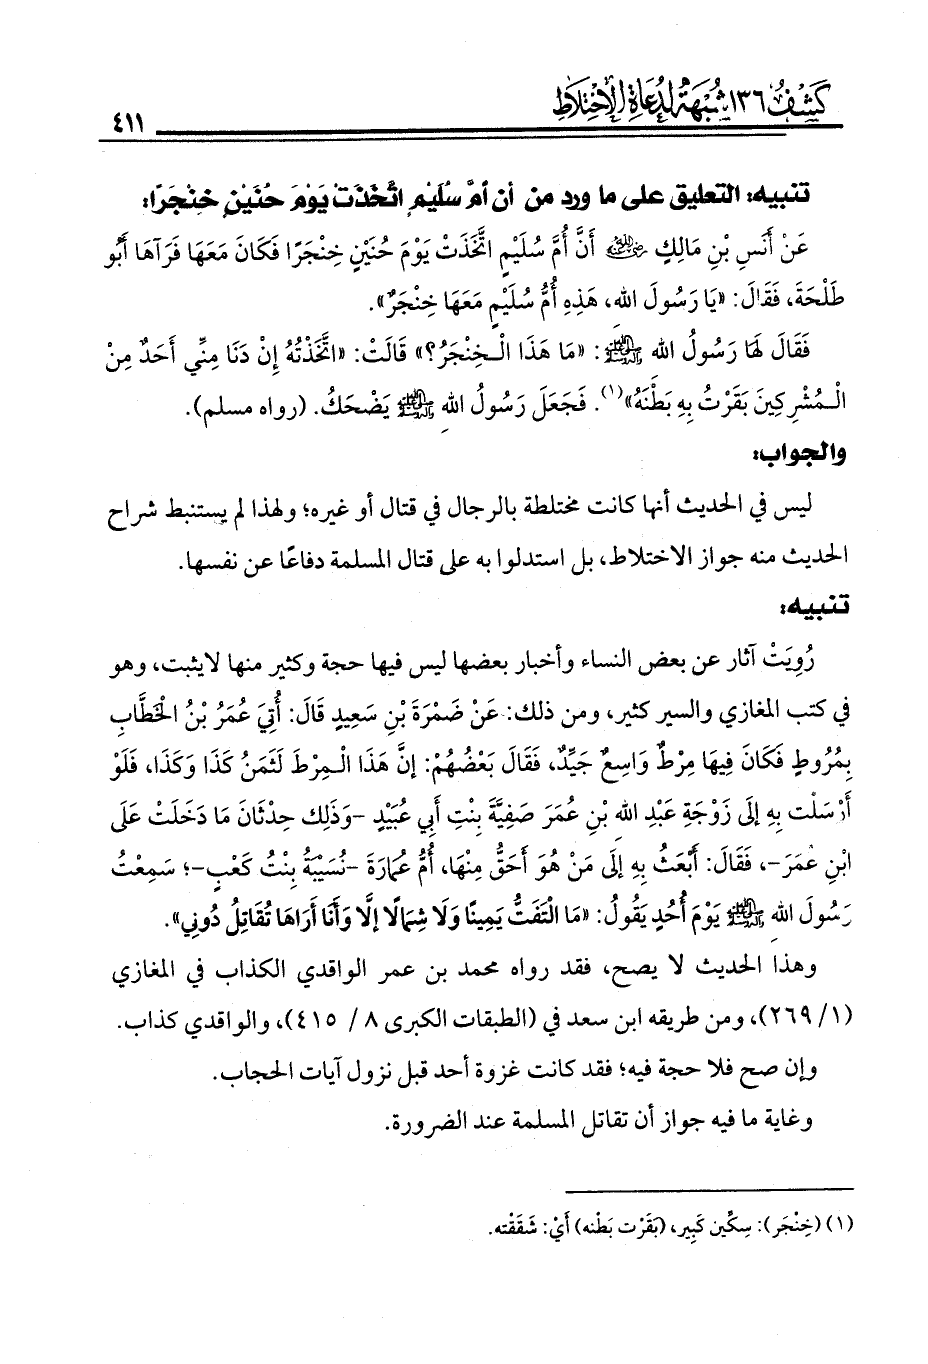 كشف ١٣٦ شبهة لدعاة الاختلاط
٤١١
تنبيه: التعليق على ما ورد من أن أمَّ سُلَيْمٍ اتَّخَذَتْ يَوْمَ حُنَيْنٍ خِنْجَرًا:
عَنْ أَنَسِ بْنِ مَالِكٍ ﵁ أَنَّ أُمَّ سُلَيْمٍ اتَّخَذَتْ يَوْمَ حُنَيْنٍ خِنْجَرًا فَكَانَ مَعَهَا فَرَآهَا أَبُو
طَلْحَةَ، فَقَالَ: «يَا رَسُولَ الله، هَذِهِ أُمُّ سُلَيْمٍ مَعَهَا خِنْجَرٌ».
فَقَالَ لَهَا رَسُولُ الله ﷺ: «مَا هَذَا الْـخِنْجَرُ؟» قَالَتْ: «اتَّخَذْتُهُ إِنْ دَنَا مِنِّي أَحَدٌ مِنْ
الْـمُشْرِكِينَ بَقَرْتُ بِهِ بَطْنَهُ»(١). فَجَعَلَ رَسُولُ اللهِ ﷺ يَضْحَكُ. (رواه مسلم).
والجواب:
ليس في الحديث أنها كانت مختلطة بالرجال في قتال أو غيره؛ ولهذا لم يستنبط شراح
الحديث منه جواز الاختلاط، بل استدلوا به على قتال المسلمة دفاعًا عن نفسها.
تنبيه:
رُوِيَتْ آثار عن بعض النساء وأخبار بعضها ليس فيها حجة وكثير منها لا يثبت، وهو
في كتب المغازي والسير كثير، ومن ذلك: عَنْ ضَمْرَةَ بْنِ سَعِيدٍ قَالَ: أُتِيَ عُمَرُ بْنُ الْخَطَّابِ
بِمُرُوطٍ فَكَانَ فِيهَا مِرْطٌ وَاسِعٌ جَيِّدٌ، فَقَالَ بَعْضُهُمْ: إِنَّ هَذَا الْـمِرْطَ لَثَمَنُ كَذَا وَكَذَا، فَلَوْ
أَرْسَلْت بِهِ إِلَى زَوْجَةِ عَبْدِ اللهِ بْنِ عُمَرَ صَفِيَّةَ بِنْتِ أَبِي عُبَيْدٍ -وَذَلِكَ حِدْثَانَ مَا دَخَلَتْ عَلَى
ابْنِ عُمَرَ-، فَقَالَ: أَبْعَثُ بِهِ إِلَى مَنْ هُوَ أَحَقُّ مِنْهَا، أُمُّ عُمَارَةَ -نُسَيْبَةُ بِنْتُ كَعْبٍ-؛ سَمِعْتُ
رَسُولَ اللهِ ﷺ يَوْمَ أُحُدٍ يَقُولُ: «مَا الْتَفَتُّ يَمِينًا وَلَا شِمَالًا إِلَّا وَأَنَا أَرَاهَا تُقَاتِلُ دُونِي».
وهذا الحديث لا يصح، فقد رواه محمد بن عمر الواقدي الكذاب في المغازي
(١/ ٢٦٩)، ومن طريقه ابن سعد في (الطبقات الكبرى ٨/ ٤١٥)، والواقدي كذاب.
وإن صح فلا حجة فيه؛ فقد كانت غزوة أحد قبل نزول آيات الحجاب.
وغاية ما فيه جواز أن تقاتل المسلمة عند الضرورة.
(١) (خِنْجَر): سِكِّين كَبِير، (بَقَرْت بَطْنه) أَيْ: شَقَقْته.